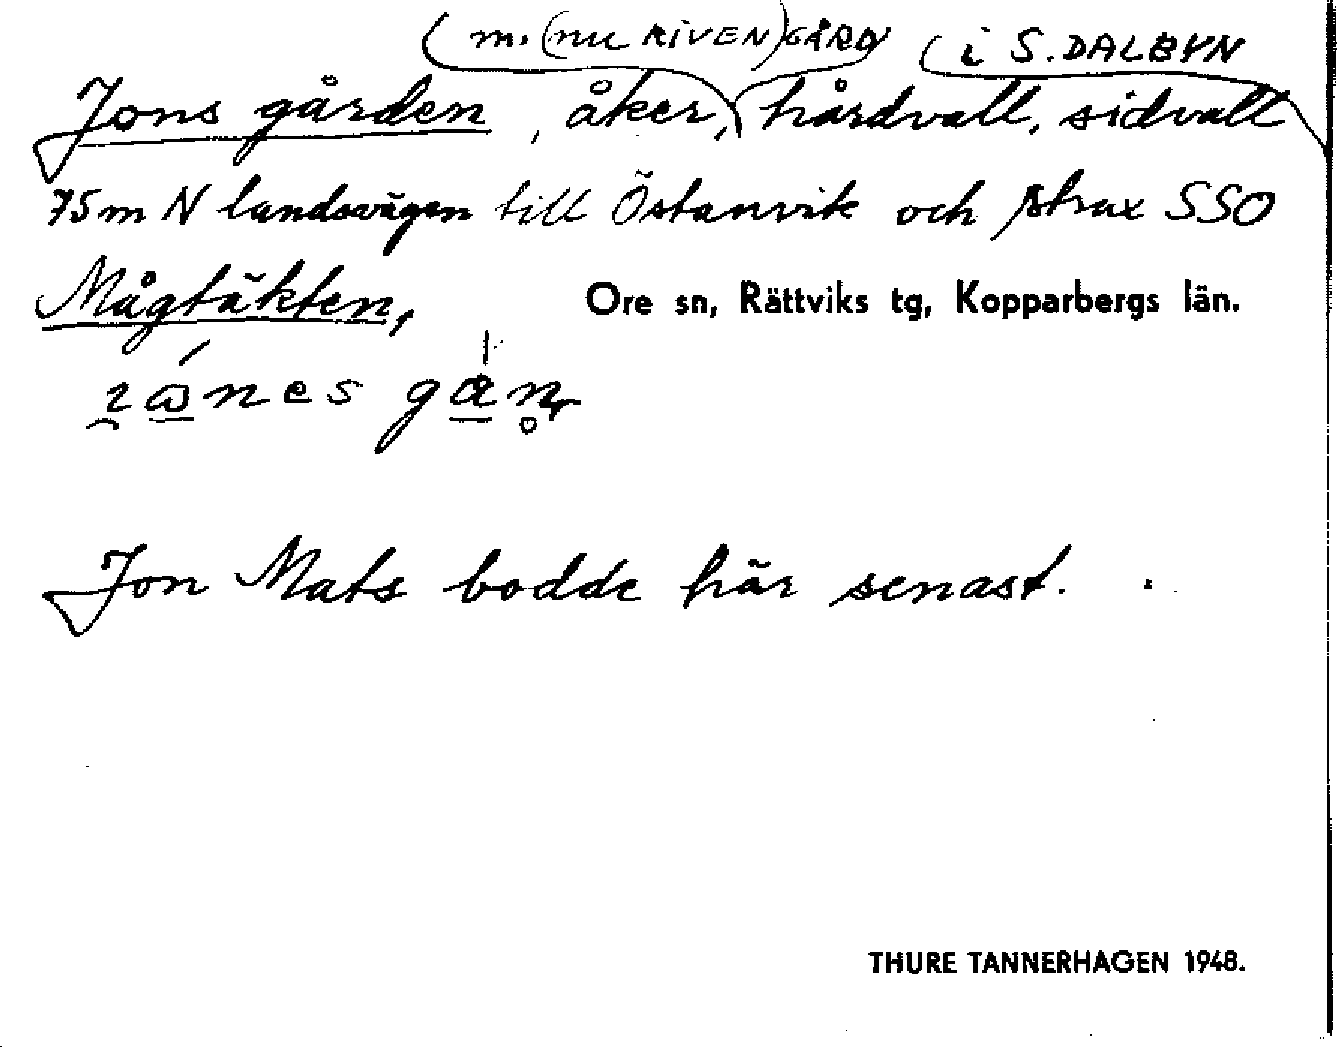 m. (nu RIVEN) GÅRD i S. DALBYN
Jons gården, åker, hårdvall, sidvall
75 m N landsvägen till Östanvik och strax SSO
Mågtäkten,
Ore sn, Rättviks tg, Kopparbergs län.
Jon Mats bodde här senast.
THURE TANNERHAGEN 1948.